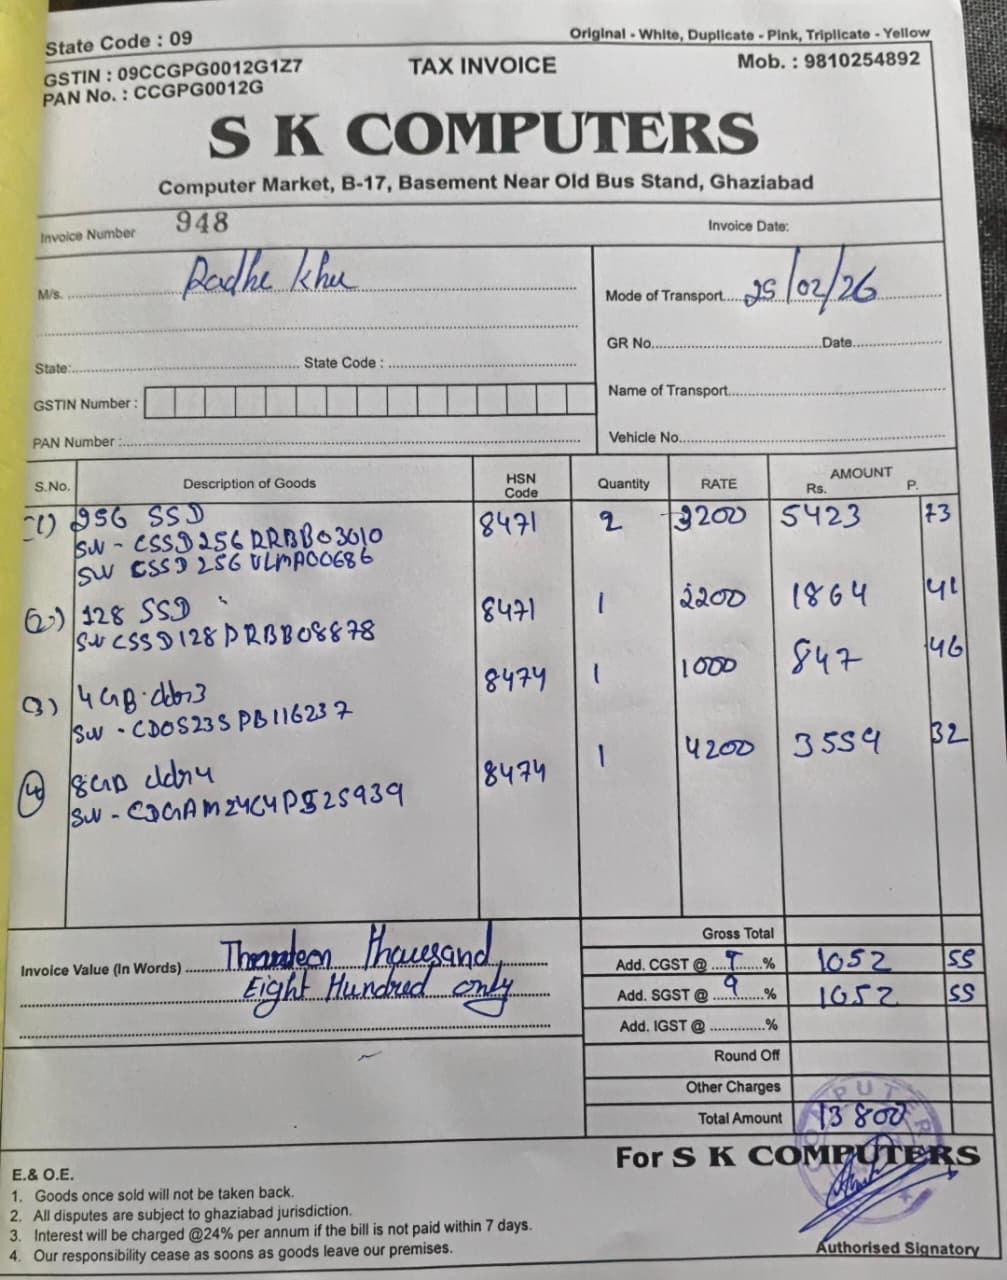 State Code : 09
Original - White, Duplicate - Pink, Triplicate - Yellow
GSTIN : 09CCGPG0012G1Z7
TAX INVOICE
Mob. : 9810254892
PAN No. : CCGPG0012G
S K COMPUTERS
Computer Market, B-17, Basement Near Old Bus Stand, Ghaziabad
Invoice Number 948
Invoice Date:
M/s. Radhe Khu
Mode of Transport 25/02/26
GR No. Date
State: State Code :
Name of Transport
GSTIN Number :
PAN Number :
Vehicle No.
S.No. Description of Goods HSN Code Quantity RATE AMOUNT Rs. P.
(1) 256 SSD 8471 2 3200 5423 73
SN - CSSD256RRBB03010
SN CSSD256VLMA00686
(2) 128 SSD 8471 1 2200 1864 41
SN CSSD128PRBB08878
(3) 4GB ddr3 8474 1 1000 847 46
SN - CDOS23SPB116237
(4) 8GB ddr4 8474 1 4200 3559 32
Gross Total
Invoice Value (In Words) Thousand
Eight Hundred only
Add. CGST @ 9 % 1052 55
Add. SGST @ 9 % 1052 55
Add. IGST @ %
Round Off
Other Charges
Total Amount 13800
For S K COMPUTERS
E.& O.E.
1. Goods once sold will not be taken back.
2. All disputes are subject to ghaziabad jurisdiction.
3. Interest will be charged @24% per annum if the bill is not paid within 7 days.
4. Our responsibility cease as soons as goods leave our premises.
Authorised Signatory